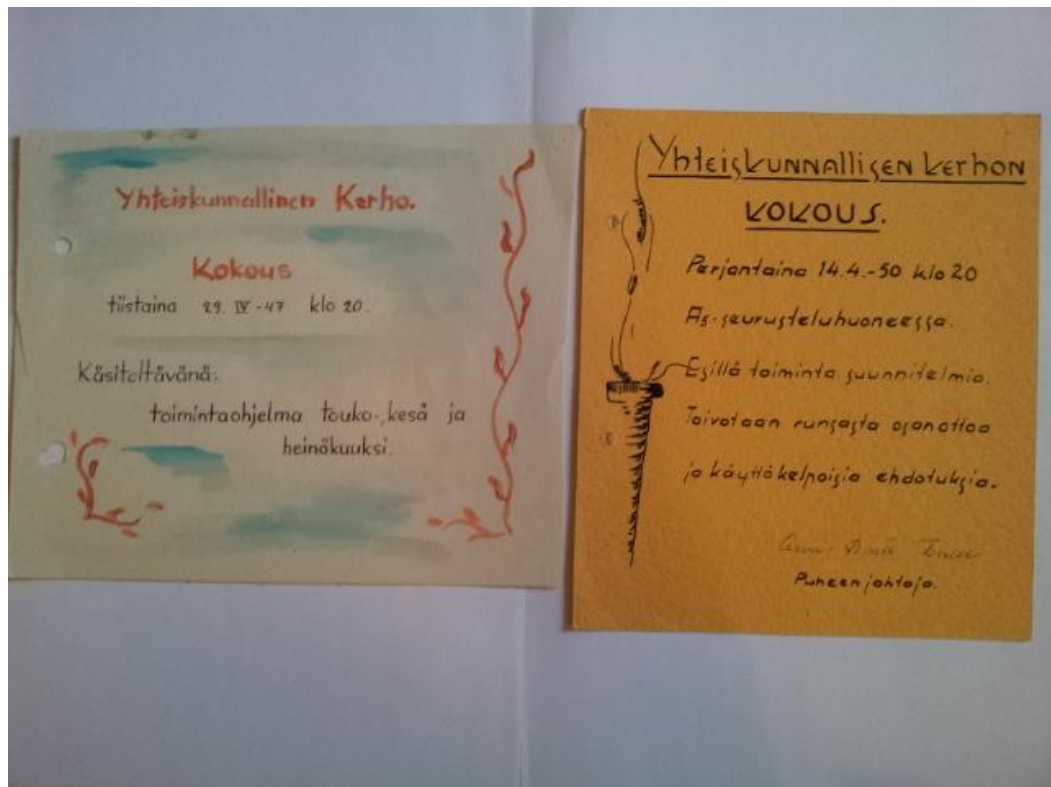 Yhteiskunnallinen Kerho.
Kokous
tiistaina 29. IV -47 klo 20.
Käsiteltävänä:
toimintaohjelma touko-, kesä ja
heinökuuksi.
Yhteiskunnallisen kerhon
KOKOUS.
Perjantaina 14.4.-50 klo 20
As-seurusteluhuoneessa.
Esillä toiminta suunnitelmia.
Toivotaan runsasta osanottoa
ja käyttökelpoisia ehdotuksia.
Puheenjohtaja.